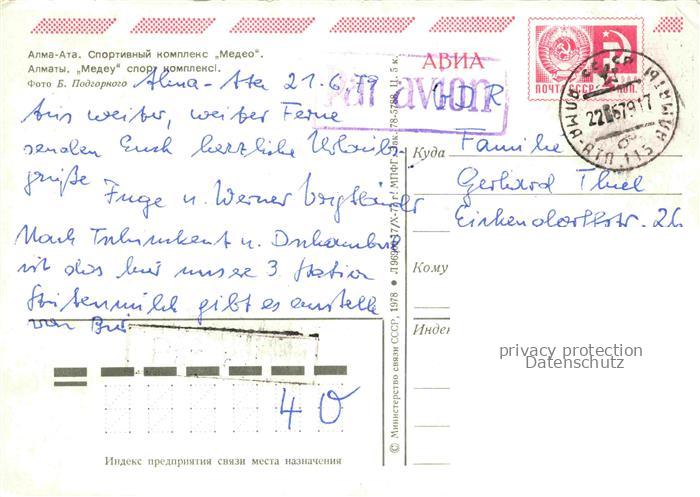 Алма-Ата. Спортивный комплекс „Медео".
Алматы. „Медеу" спорт комплексі.
Фото Б. Подгорного
Alma-Ata 21.6.79
Aus weiter, weiter Ferne
senden Euch herzliche Urlaubs-
grüße
Inge u. Werner
Nach Tschimkent u. Dschambul
ist das hier unsere 3. Station
Stutenmilch gibt es anstelle
von Bier.
АВИА
par avion
GDR
ПОЧТА СССР
коп.
СССР
АЛМА-АТА 115
Куда
Familie
Gerhard Thiel
Eichendorffstr. 26
Кому
Индекс
privacy protection
Datenschutz
40
Индекс предприятия связи места назначения
© Министерство связи СССР, 1978